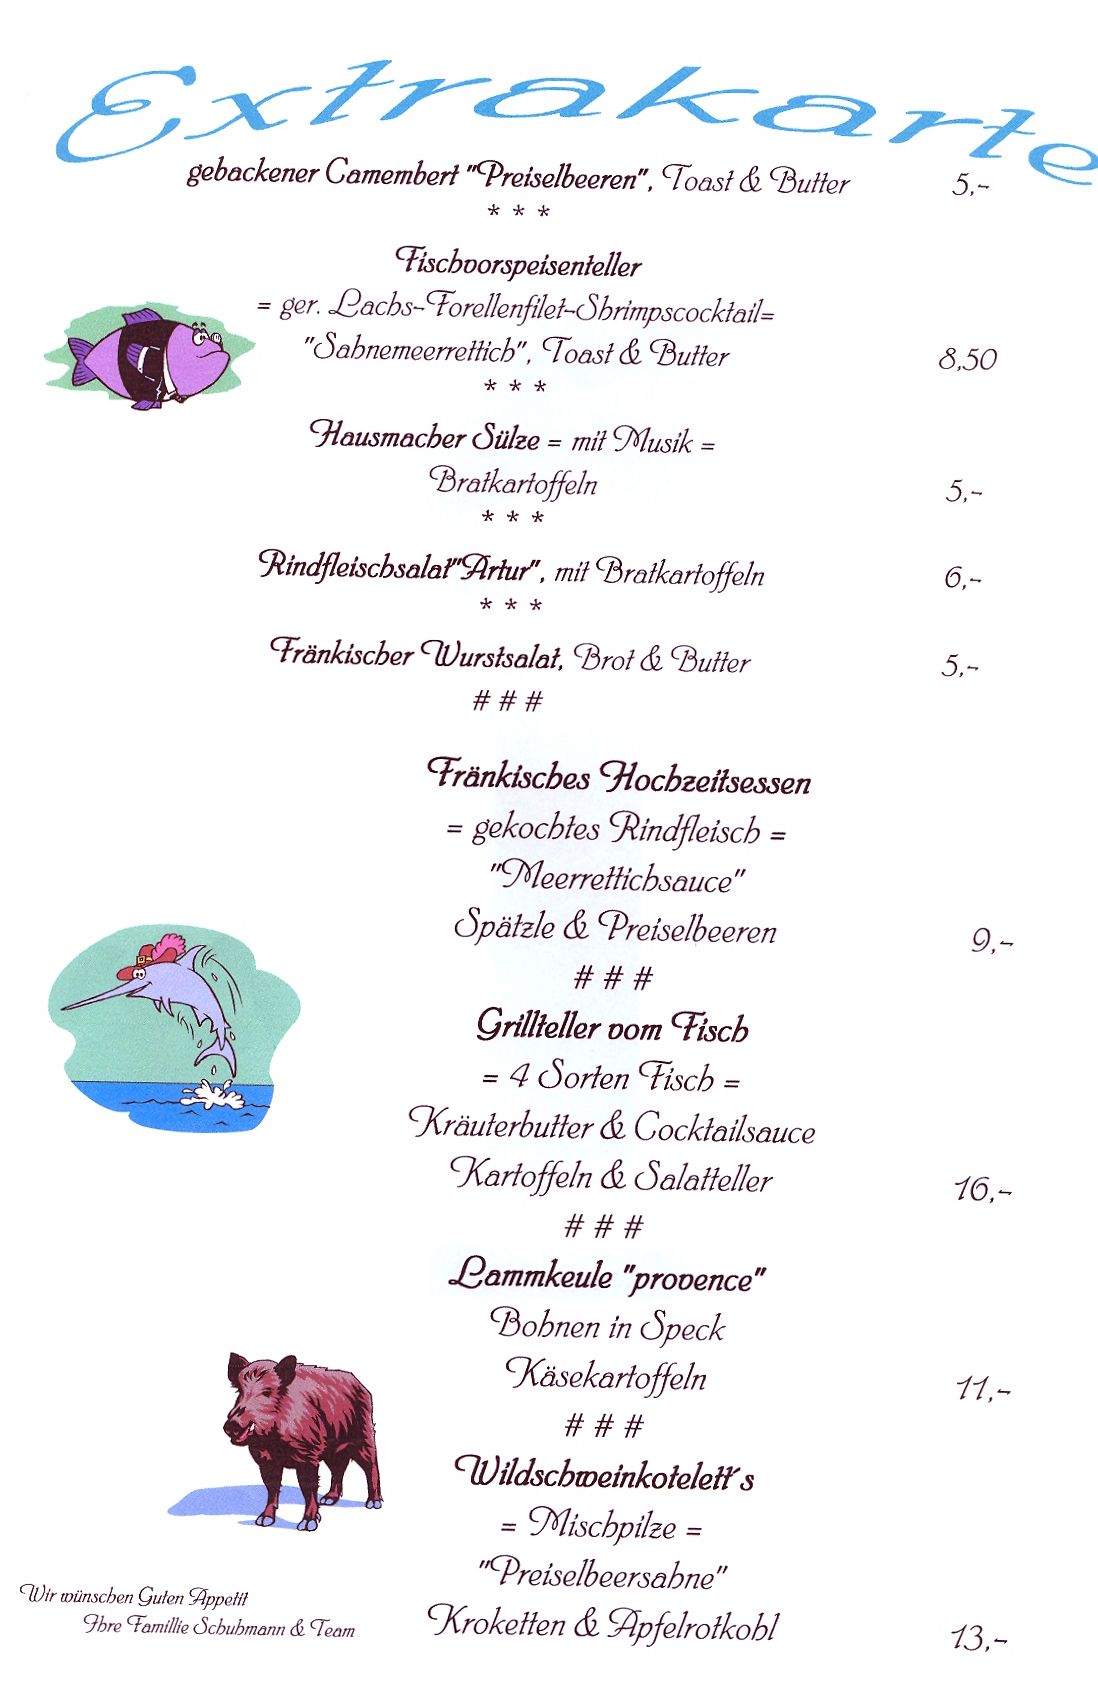 Extrakarte
gebackener Camembert "Preiselbeeren", Toast & Butter 5,-
* * *
Fischvorspeisenteller
= ger. Lachs-Forellenfilet-Shrimpscocktail=
"Sahnemeerrettich", Toast & Butter 8,50
* * *
Hausmacher Sülze = mit Musik =
Bratkartoffeln 5,-
* * *
Rindfleischsalat"Artur", mit Bratkartoffeln 6,-
* * *
Fränkischer Wurstsalat, Brot & Butter 5,-
# # #
Fränkisches Hochzeitsessen
= gekochtes Rindfleisch =
"Meerrettichsauce"
Spätzle & Preiselbeeren 9,-
# # #
Grillteller vom Fisch
= 4 Sorten Fisch =
Kräuterbutter & Cocktailsauce
Kartoffeln & Salatteller 16,-
# # #
Lammkeule "provence"
Bohnen in Speck
Käsekartoffeln 11,-
# # #
Wildschweinkotelett´s
= Mischpilze =
"Preiselbeersahne"
Kroketten & Apfelrotkohl 13,-
Wir wünschen Guten Appetit
Ihre Famillie Schuhmann & Team